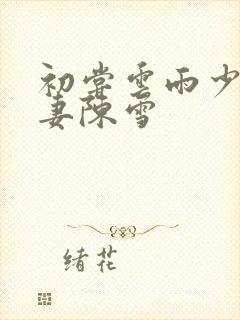 初尝雲雨少
妻陳雪
绪花